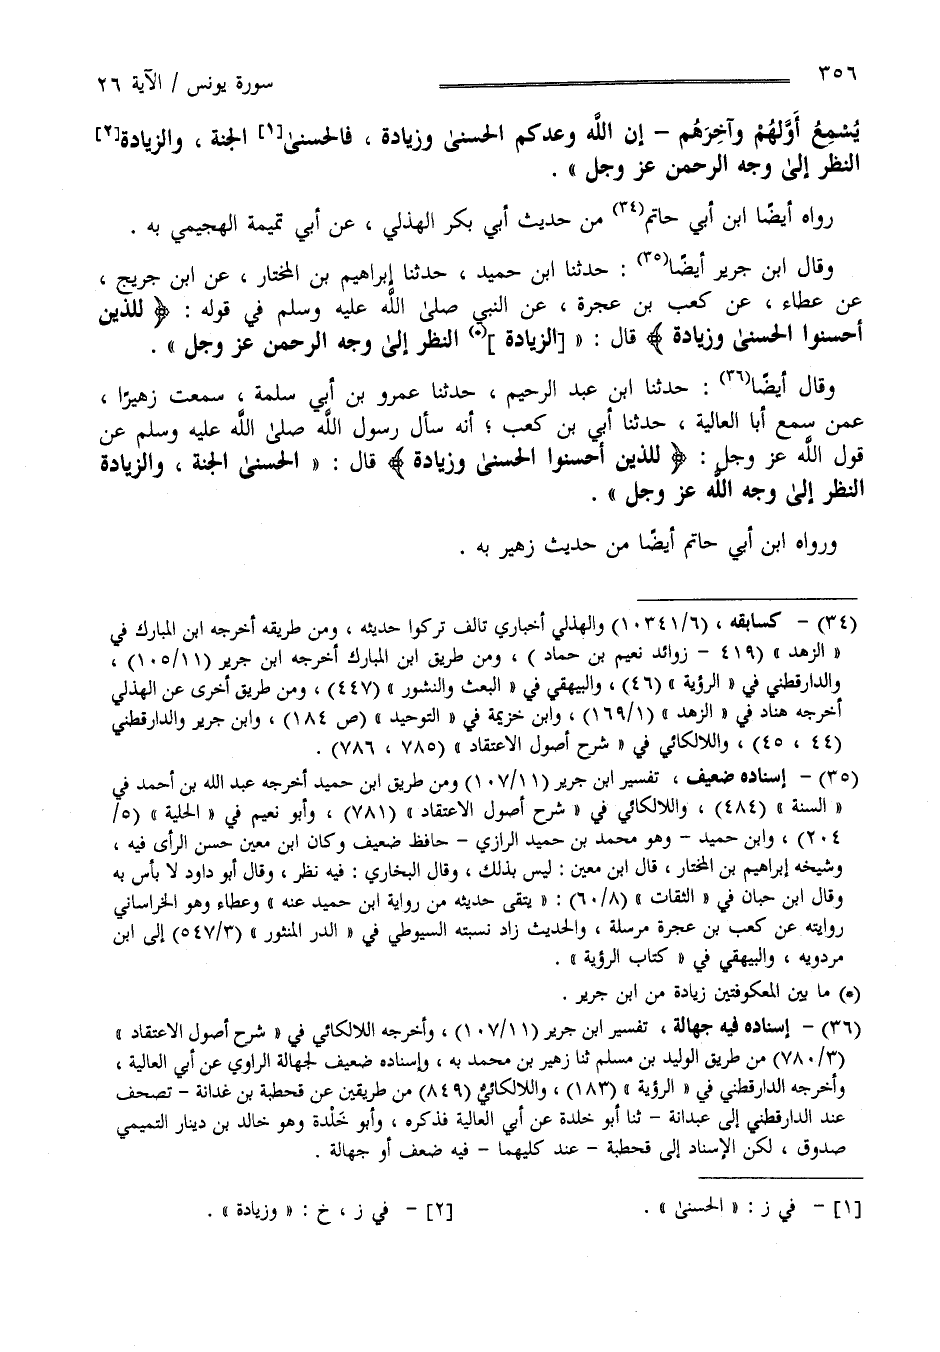 ٣٥٦
سورة يونس / الآية ٢٦
يُسْمِعُ أَوَّلَهُمْ وآخِرَهُم - إن اللَّه وعدكم الحسنىٰ وزيادة ، فالحسنىٰ[١] الجنة ، والزيادة[٢]
النظر إلىٰ وجه الرحمن عز وجل » .
رواه أيضًا ابن أبي حاتم(٣٤) من حديث أبي بكر الهذلي ، عن أبي تميمة الهجيمي به .
وقال ابن جرير أيضًا(٣٥) : حدثنا ابن حميد ، حدثنا إبراهيم بن المختار ، عن ابن جريج ،
عن عطاء ، عن كعب بن عجرة ، عن النبي صلىٰ اللَّه عليه وسلم في قوله : ﴿ للذين
أحسنوا الحسنىٰ وزيادة ﴾ قال : « [الزيادة ](*) النظر إلىٰ وجه الرحمن عز وجل » .
وقال أيضًا(٣٦) : حدثنا ابن عبد الرحيم ، حدثنا عمرو بن أبي سلمة ، سمعت زهيرًا ،
عمن سمع أبا العالية ، حدثنا أبي بن كعب ؛ أنه سأل رسول اللَّه صلىٰ اللَّه عليه وسلم عن
قول اللَّه عز وجل : ﴿ للذين أحسنوا الحسنىٰ وزيادة ﴾ قال : « الحسنىٰ الجنة ، والزيادة
النظر إلىٰ وجه اللَّه عز وجل » .
ورواه ابن أبي حاتم أيضًا من حديث زهير به .
(٣٤) - كسابقه ، (١٠٣٤١/٦) والهذلي أخباري تالف تركوا حديثه ، ومن طريقه أخرجه ابن المبارك في
« الزهد » (٤١٩ - زوائد نعيم بن حماد ) ، ومن طريق ابن المبارك أخرجه ابن جرير (١٠٥/١١) ،
والدارقطني في « الرؤية » (٤٦) ، والبيهقي في « البعث والنشور » (٤٤٧) ، ومن طريق أخرى عن الهذلي
أخرجه هناد في « الزهد » (١٦٩/١) ، وابن خزيمة في « التوحيد » (ص ١٨٤) ، وابن جرير والدارقطني
(٤٤ ، ٤٥) ، واللالكائي في « شرح أصول الاعتقاد » (٧٨٥ ، ٧٨٦) .
(٣٥) - إسناده ضعيف ، تفسير ابن جرير (١٠٧/١١) ومن طريق ابن حميد أخرجه عبد الله بن أحمد في
« السنة » (٤٨٤) ، واللالكائي في « شرح أصول الاعتقاد » (٧٨١) ، وأبو نعيم في « الحلية » (٥/
٢٠٤) ، وابن حميد - وهو محمد بن حميد الرازي - حافظ ضعيف وكان ابن معين حسن الرأى فيه ،
وشيخه إبراهيم بن المختار ، قال ابن معين : ليس بذلك ، وقال البخاري : فيه نظر ، وقال أبو داود لا بأس به
وقال ابن حبان في « الثقات » (٦٠/٨) : « يتقى حديثه من رواية ابن حميد عنه » وعطاء وهو الخراساني
روايته عن كعب بن عجرة مرسلة ، والحديث زاد نسبته السيوطي في « الدر المنثور » (٥٤٧/٣) إلى ابن
مردويه ، والبيهقي في « كتاب الرؤية » .
(*) ما بين المعكوفتين زيادة من ابن جرير .
(٣٦) - إسناده فيه جهالة ، تفسير ابن جرير (١٠٧/١١) ، وأخرجه اللالكائي في « شرح أصول الاعتقاد »
(٧٨٠/٣) من طريق الوليد بن مسلم ثنا زهير بن محمد به ، وإسناده ضعيف لجهالة الراوي عن أبي العالية ،
وأخرجه الدارقطني في « الرؤية » (١٨٣) ، واللالكائي (٨٤٩) من طريقين عن قحطبة بن غدانة - تصحف
عند الدارقطني إلى عبدانة - ثنا أبو خلدة عن أبي العالية فذكره ، وأبو خَلْدة وهو خالد بن دينار التميمي
صدوق ، لكن الإسناد إلى قحطبة - عند كليهما - فيه ضعف أو جهالة .
[١] - في ز : « الحسنىٰ » .
[٢] - في ز ، خ : « وزيادة » .